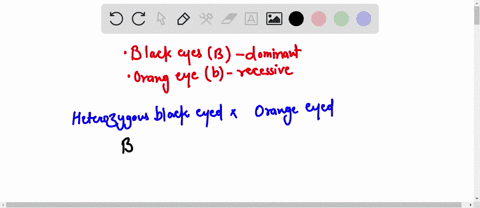 · Black eyes (B) - dominant
· Orang eye (b) - recessive
Heterozygous black eyed x Orange eyed
B